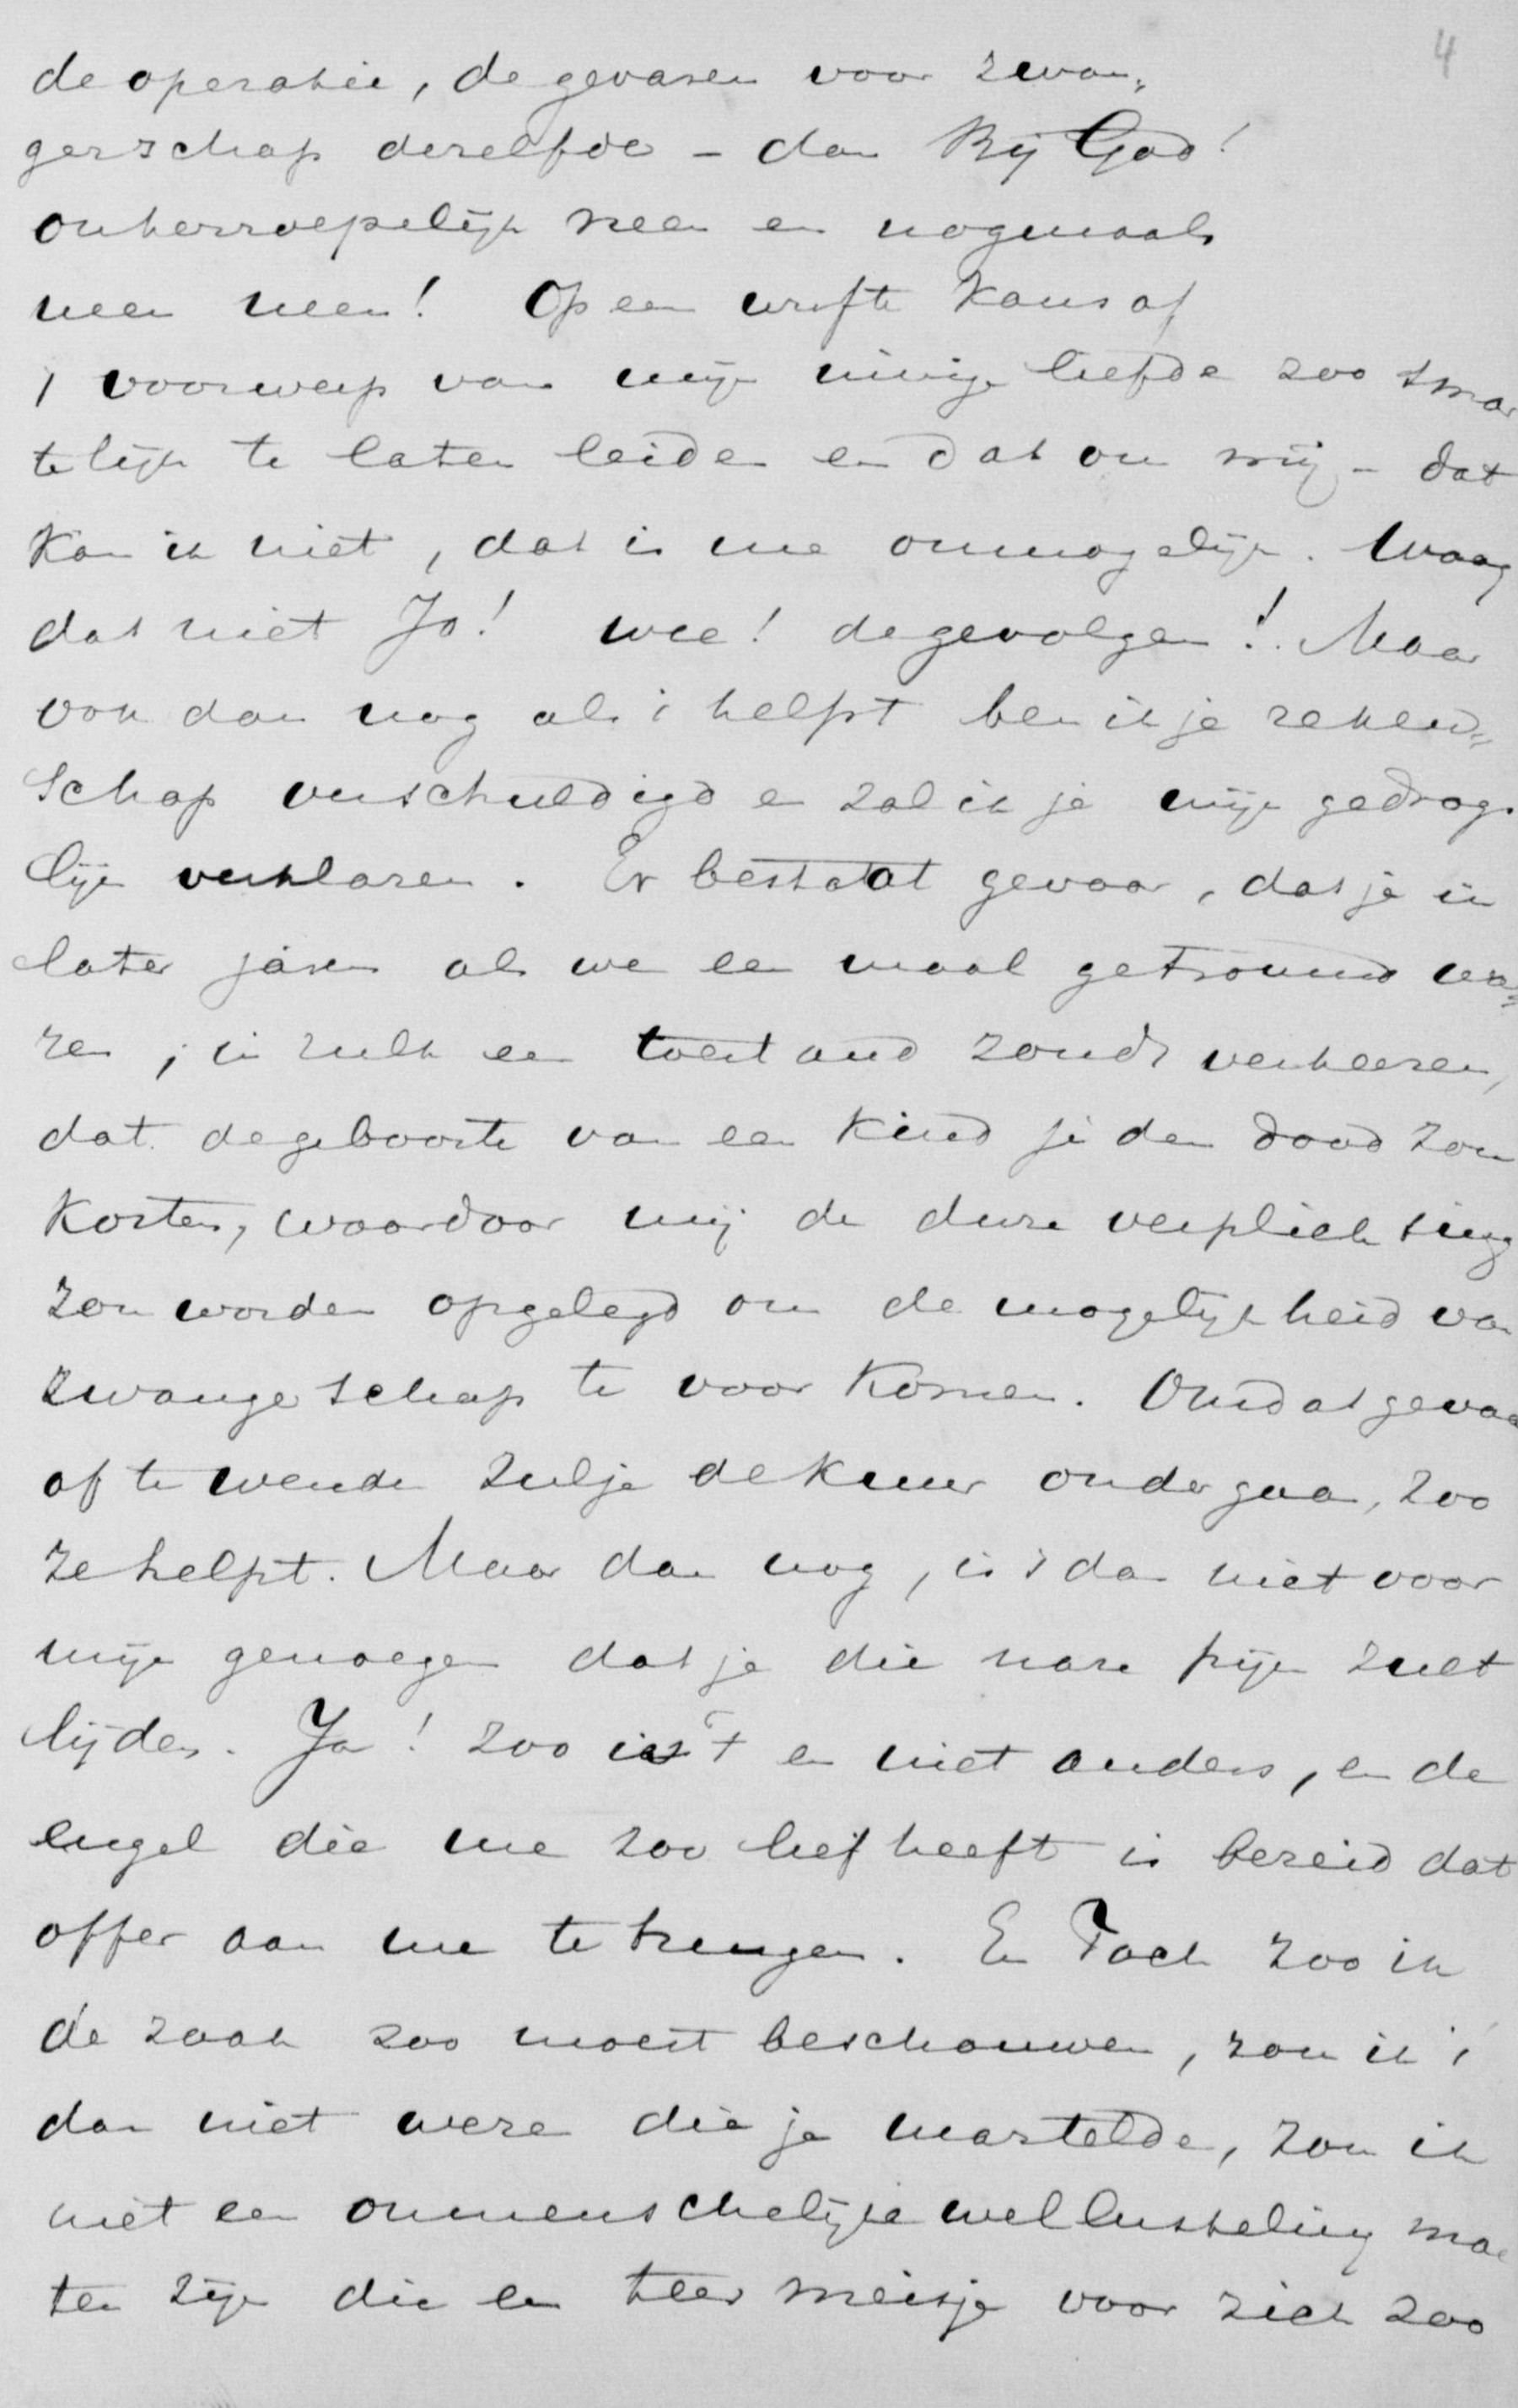 4
de operatie, de gevaren voor zwan„
gerschap dezelfde – dan Bij God!
onherroepelijk neen en nogmaals
neen neen! Op een wufte kans af
't voorwerp van mijn innige liefde zoo smar
telijk te laten leiden en dat om mij – dat
kan ik niet, dat is me onmogelijk. Waag
dat niet Jo! wee! de gevolgen! Maar
ook dan nog als 't helpt ben ik je reken„
schap verschuldigd en zal ik je mijn gedrags
lijn verklaren. Er bestaat gevaar, dat je in
later jaren als we een maal getrouwd wa„
ren, in zulk een toestand zoudt verkeeren,
dat de geboorte van een kind je den dood zou
kosten, waardoor mij de dure verplichting
zou worden opgelegd om de mogelijkheid van
zwangerschap te voorkomen. Om dat gevaar
af te wenden zul je de kuur ondergaan, zoo
ze helpt. Maar dan nog, is 't dan niet voor
mijn genoegen dat je die nare pijn zult
lijden. Ja! zoo is 't en niet anders, en de
engel die me zoo lief heeft is bereid dat
offer aan me te brengen. En Toch zoo ik
de zaak zoo moest beschouwen, zou ik 't
dan niet weze die je martelde, zou ik
niet een onmenschelijke wellusteling moe
ten zijn die een teer meisje voor zich zoo